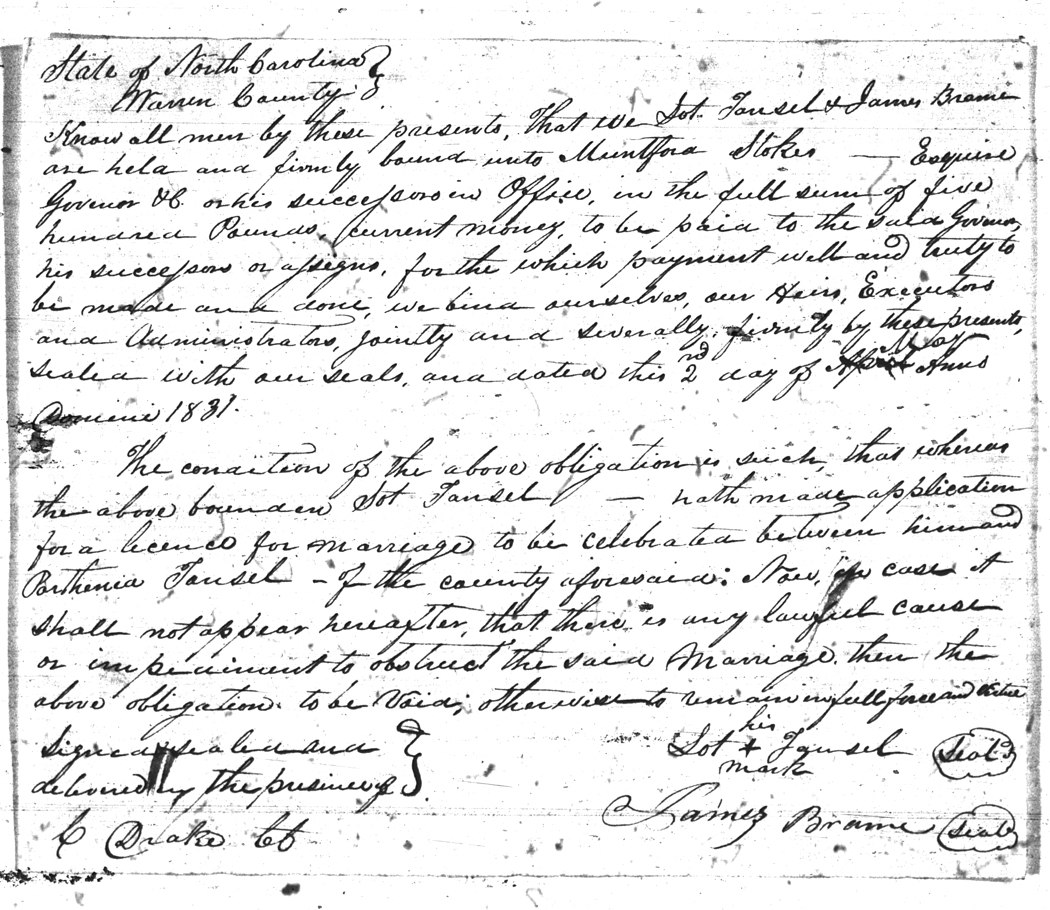 State of North Carolina }
Warren County }
Know all men by these presents, That we Lot Tansel & James Brame
are held and firmly bound unto Muntford Stokes — Esquire
Govenor &C. or his successors in Office, in the full sum of five
hundred Pounds, current money, to be paid to the said Govenor,
his successors or assigns, for the which payment well and truly to
be made and done, we bind ourselves, our Heirs, Executors
and Administrators, jointly and severally, firmly by these presents,
sealed with our seals, and dated this 2nd day of April May Anno
Domini 1831.
The condition of the above obligation is such, that whereas
the above bounden Lot Tansel — hath made application
for a licence for marriage to be celebrated between him and
Parthenia Tansel - of the county aforesaid: Now, in case it
shall not appear hereafter, that there is any lawful cause
or impediment to obstruct the said Marriage, then the
above obligation to be Void; otherwise to remain in full force and virtue
Signed sealed and }
delivered in the presence of }
his
Lot + Tansel Seal
mark
James Brame Seal
C Drake